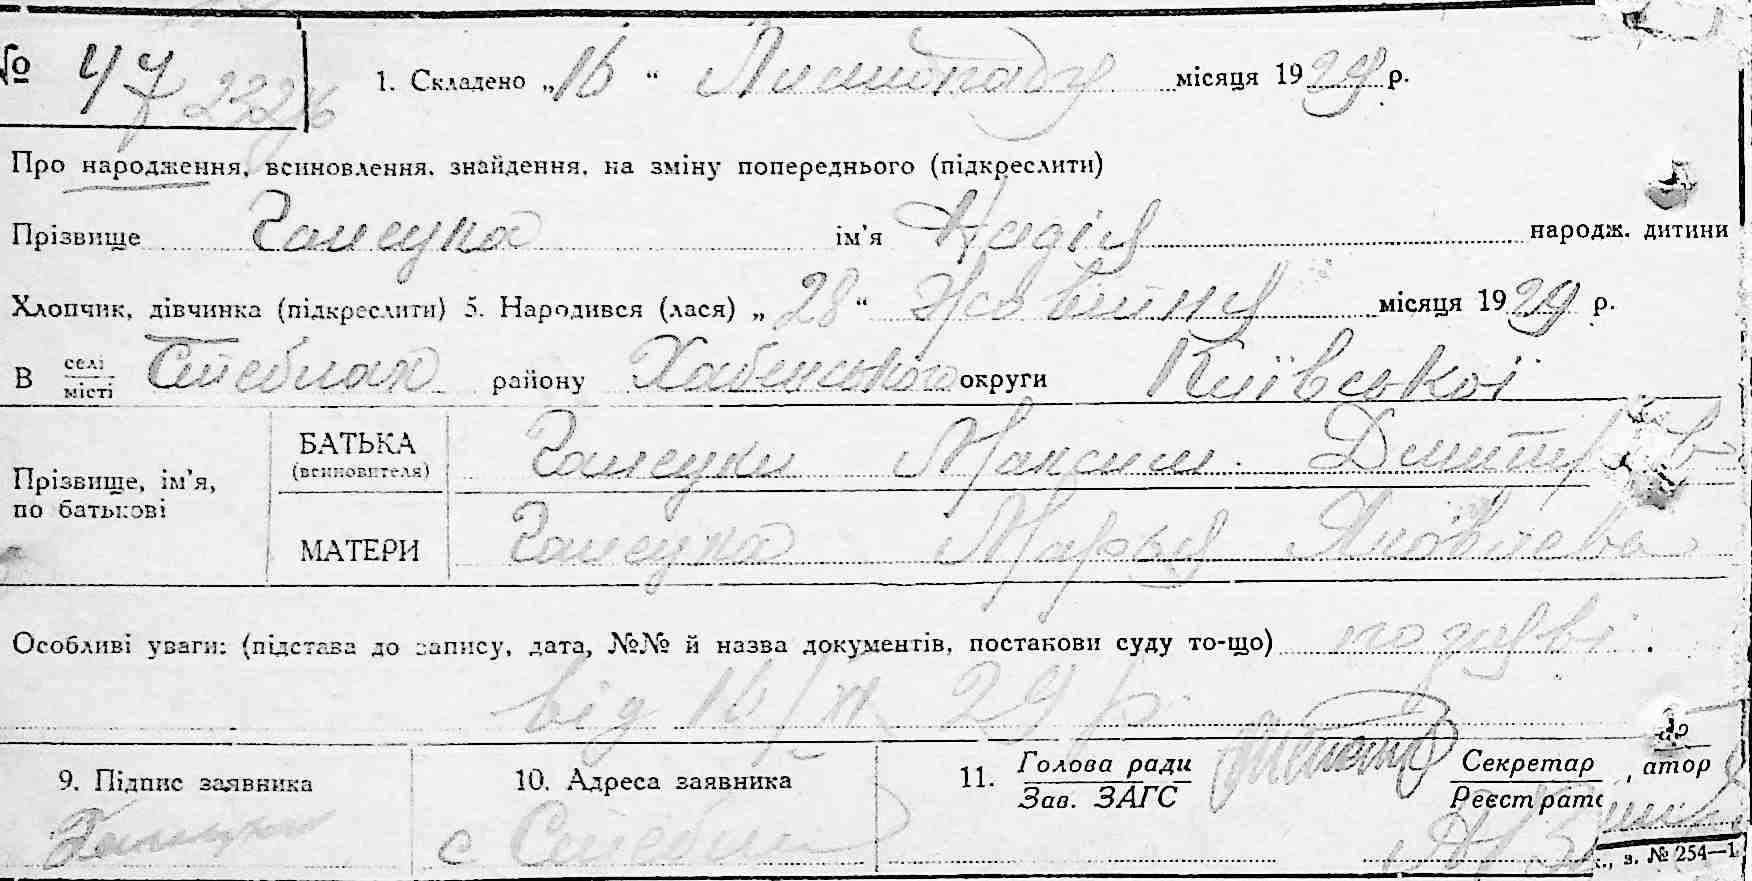 № 47 2326
1. Складено „16“ Листопада місяця 1929 р.
Про народження, всиновлення, знайдення, на зміну попереднього (підкреслити)
Прізвище ім'я Надія народж. дитини
Хлопчик, дівчинка (підкреслити) 5. Народився (лася) „28“ Жовтня місяця 1929 р.
В селі/місті Стеблах району Хабенського округи Київської
Прізвище, ім'я, по батькові
БАТЬКА (всиновителя) Максим
МАТЕРИ Марья Яковлева
Особливі уваги: (підстава до запису, дата, №№ й назва документів, постакови суду то-що) по заяві
від 16/XI 29 р.
9. Підпис заявника
10. Адреса заявника
11. Голова ради/Зав. ЗАГС
Секретар/Реєстрато
, атор
с
.., з. № 254—1